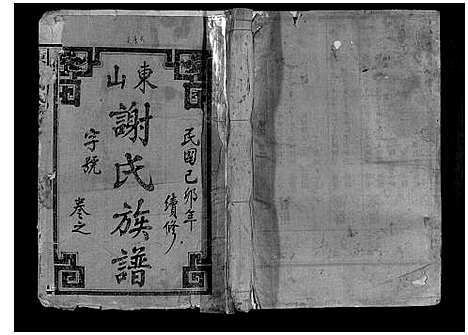 民國己卯年
續修
東山
謝氏族譜
字號
卷之